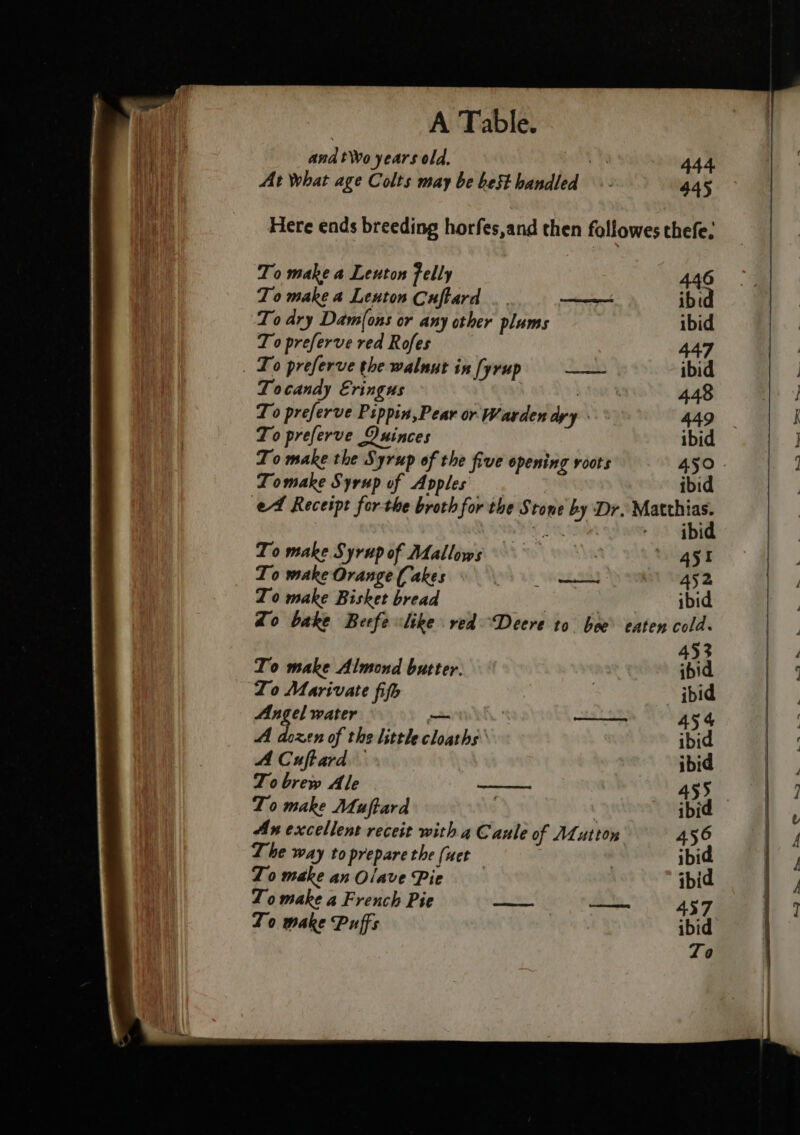 A Table.
and two years old. 444
At what age Colts may be beſt handled 445
Here ends breeding horſes,and then followes theſe.
To make a Leuton Jelly 446
To make a Leuton Cuſtard —— ibid
To dry Damſons or any other plums ibid
To preſerve red Roſes 447
To preſerve the walnut in ſyrup —— ibid
To candy Eringus 448
To preſerve Pippin,Pear or Warden dry 449
To preſerve Quinces ibid
To make the Syrup of the five opening roots 450
To make Syrup of Apples ibid
A Receipt for the broth for the Stone by Dr. Matthias.
ibid
To make Syrup of Mallows 451
To make Orange Cakes —— 452
To make Bisket bread ibid
To bake Beefe like red Deere to bee eaten cold.
453
To make Almond butter. ibid
To Marivate fiſh ibid
Angel water — —— 454
A dozen of the little cloaths ibid
A Cuſtard ibid
To brew Ale —— 455
To make Muſtard ibid
An excellent receit with a Caule of Mutton 456
The way to prepare the ſuet ibid
To make an Olave Pie ibid
To make a French Pie —— —— 457
To make Puffs ibid
To